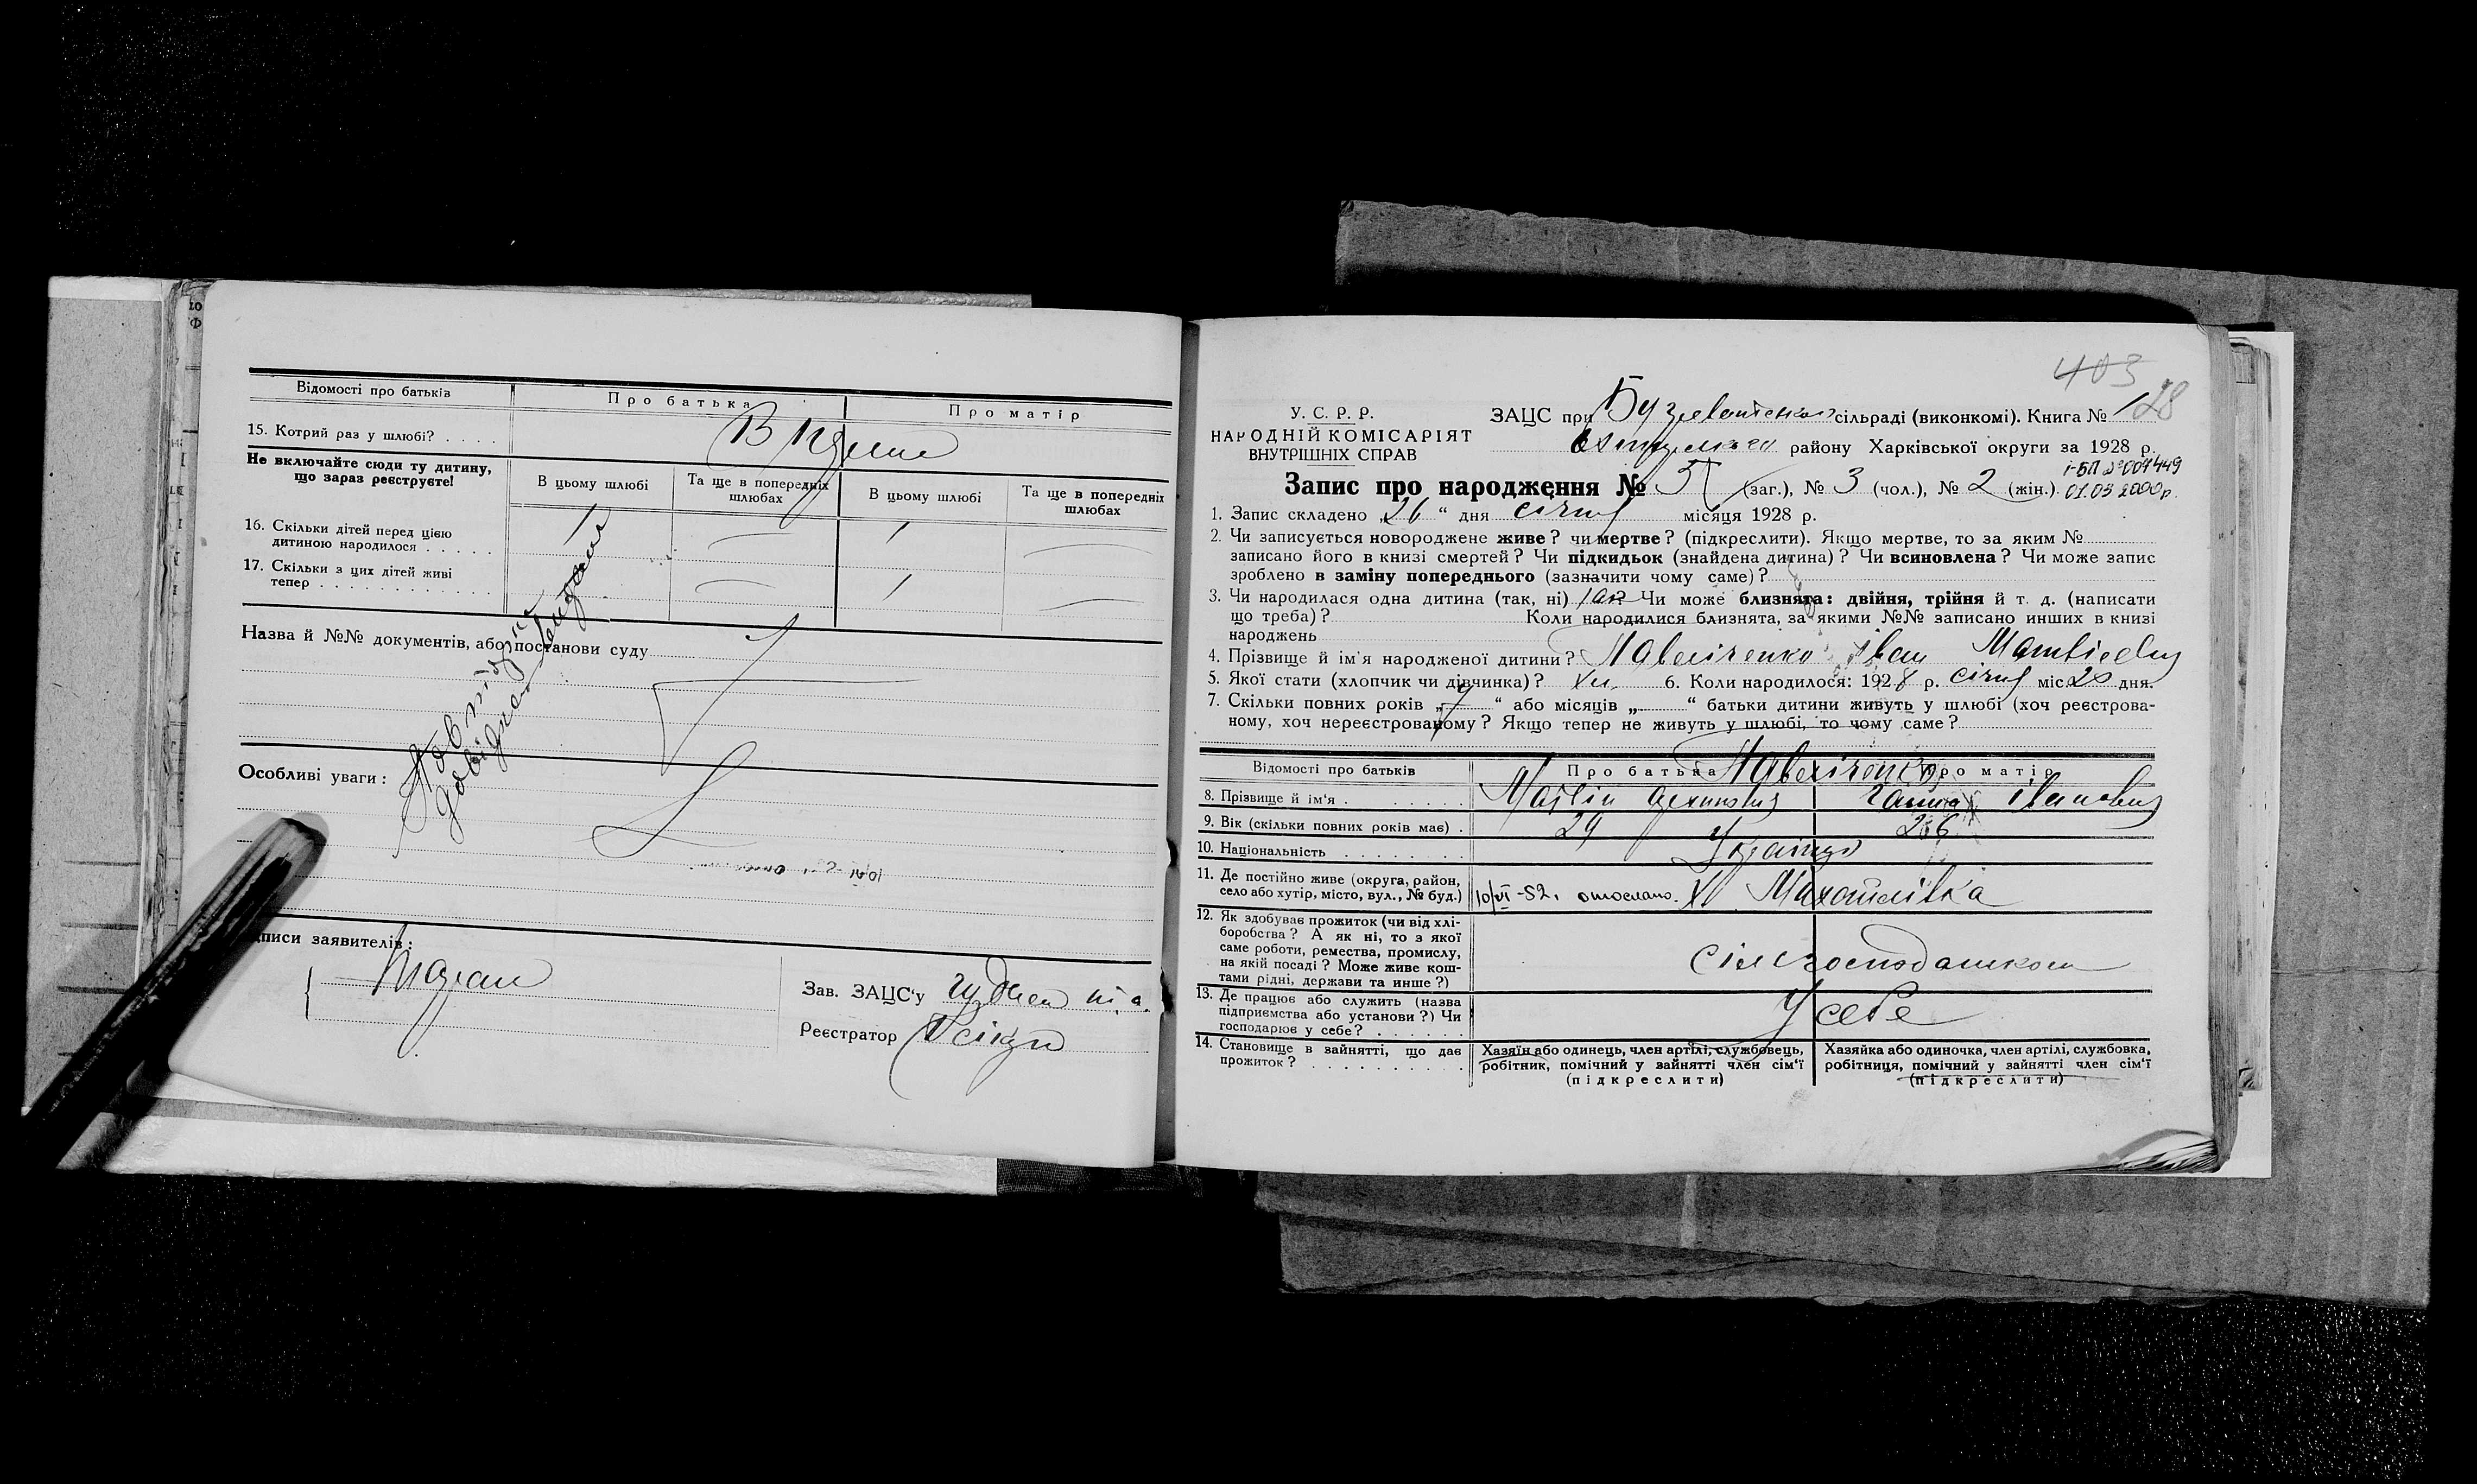 Відомості про батьків
Про батька
Про матір
15. Котрий раз у шлюбі? . . . .
Не включайте сюди ту дитину,
що зараз реєструєте!
В цьому шлюбі
Та ще в попередніх
шлюбах
В цьому шлюбі
Та ще в попередніх
шлюбах
16. Скільки дітей перед цією
дитиною народилося . . . . .
1
1
17. Скільки з цих дітей живі
тепер . . . . . . . . . . . .
1
Назва й №№ документів, або постанови суду
Особливі уваги:
писи заявителів:
Зав. ЗАЦС'у
Реєстратор
403
У. С. Р. Р.
НАРОДНІЙ КОМІСАРІЯТ
ВНУТРІШНІХ СПРАВ
ЗАЦС при сільраді (виконкомі). Книга № 128
району Харківської округи за 1928 р.
І-БП №007449
01.03 2000р.
Запис про народження № 5 (заг.), № 3 (чол.), № 2 (жін.)
1. Запис складено „26“ дня серпня місяця 1928 р.
2. Чи записується новороджене живе? чи мертве? (підкреслити). Якщо мертве, то за яким №
записано його в книзі смертей? Чи підкидьок (знайдена дитина)? Чи всиновлена? Чи може запис
зроблено в заміну попереднього (зазначити чому саме)?
3. Чи народилася одна дитина (так, ні) так Чи може близнята: двійня, трійня й т. д. (написати
що треба)? Коли народилися близнята, за якими №№ записано инших в книзі
народжень
4. Прізвище й ім'я народженої дитини? Іван
5. Якої стати (хлопчик чи дівчинка)? Хл. 6. Коли народилося: 1928 р. серпн міс 20 дня.
7. Скільки повних років „ “ або місяців „ “ батьки дитини живуть у шлюбі (хоч реєстрова-
ному, хоч нереєстрованому? Якщо тепер не живуть у шлюбі, то чому саме?
Відомості про батьків
Про батька
Про матір
8. Прізвище й ім'я . . . . . . . .
Ганна Івановна
9. Вік (скільки повних років має) .
29
26
10. Національність . . . . . . . .
11. Де постійно живе (округа, район,
село або хутір, місто, вул., № буд.)
10/VI-52. отослано. Х
12. Як здобуває прожиток (чи від хлі-
боробства? А як ні, то з якої
саме роботи, ремества, промислу,
на якій посаді? Може живе кош-
тами рідні, держави та инше?)
13. Де працює або служить (назва
підприємства або установи?) Чи
господарює у себе? . . . . . .
У себе
14. Становище в зайнятті, що дає
прожиток? . . . . . . . . . .
Хазяїн або одинець, член артілі, службовець,
робітник, помічний у зайнятті член сім'ї
(підкреслити)
Хазяйка або одиночка, член артілі, службовка,
робітниця, помічний у зайнятті член сім'ї
(підкреслити)